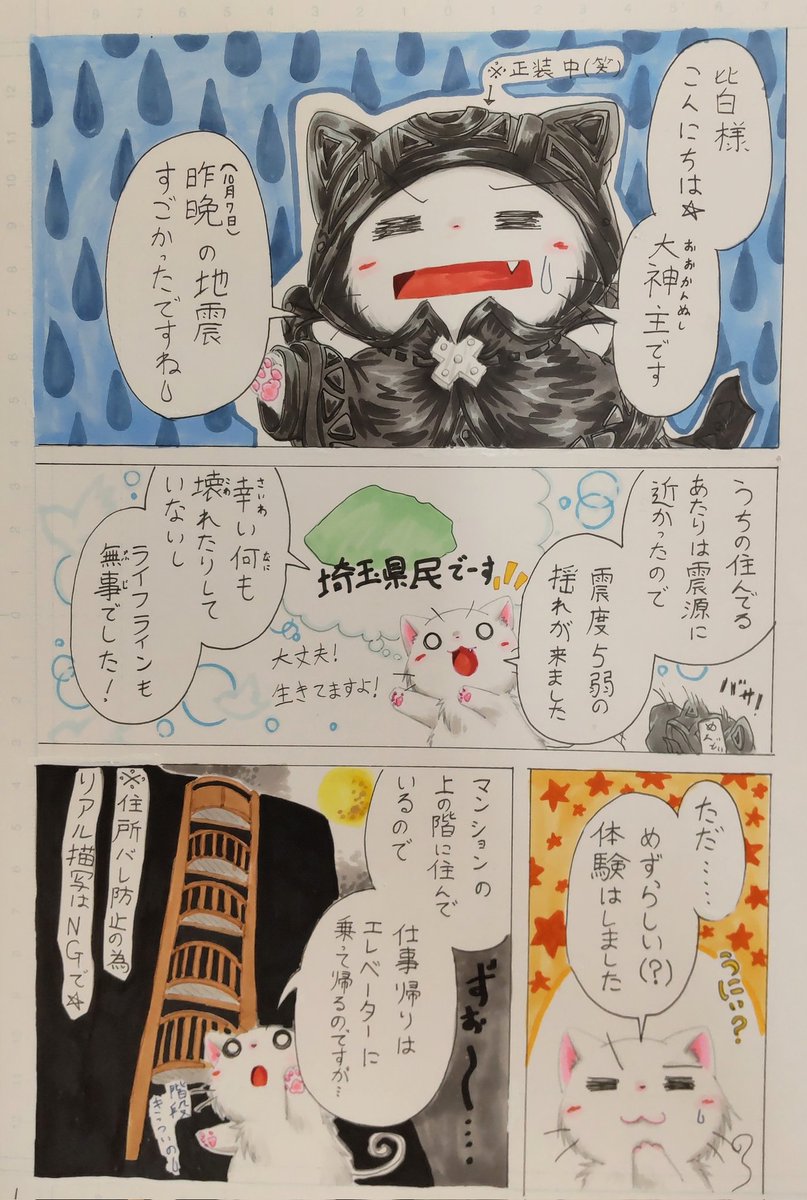 皆様
こんにちは☆
大神主です
おおかんぬし
※正装中(笑)
(10月7日)
昨晩の地震
すごかったですね
うちの住んでる
あたりは震源に
近かったので
震度5弱の
揺れが来ました
バサ!
めんでい
埼玉県民でーす
大丈夫!
生きてますよ!
幸い何も
さいわ
なに
壊れたりして
こわ
いないし
ライフラインも
無事でした!
ぶじ
ただ……
めずらしい(?)
体験はしました
うにぃ?
マンションの
上の階に住んで
いるので
仕事帰りは
エレベーターに
乗って帰るのですが…
ずぉ〜…
階段
きっついの
※住所バレ防止の為
リアル描写はNGで☆